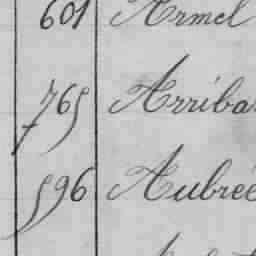 601 Armel
765 Arriba
596 Aubrée